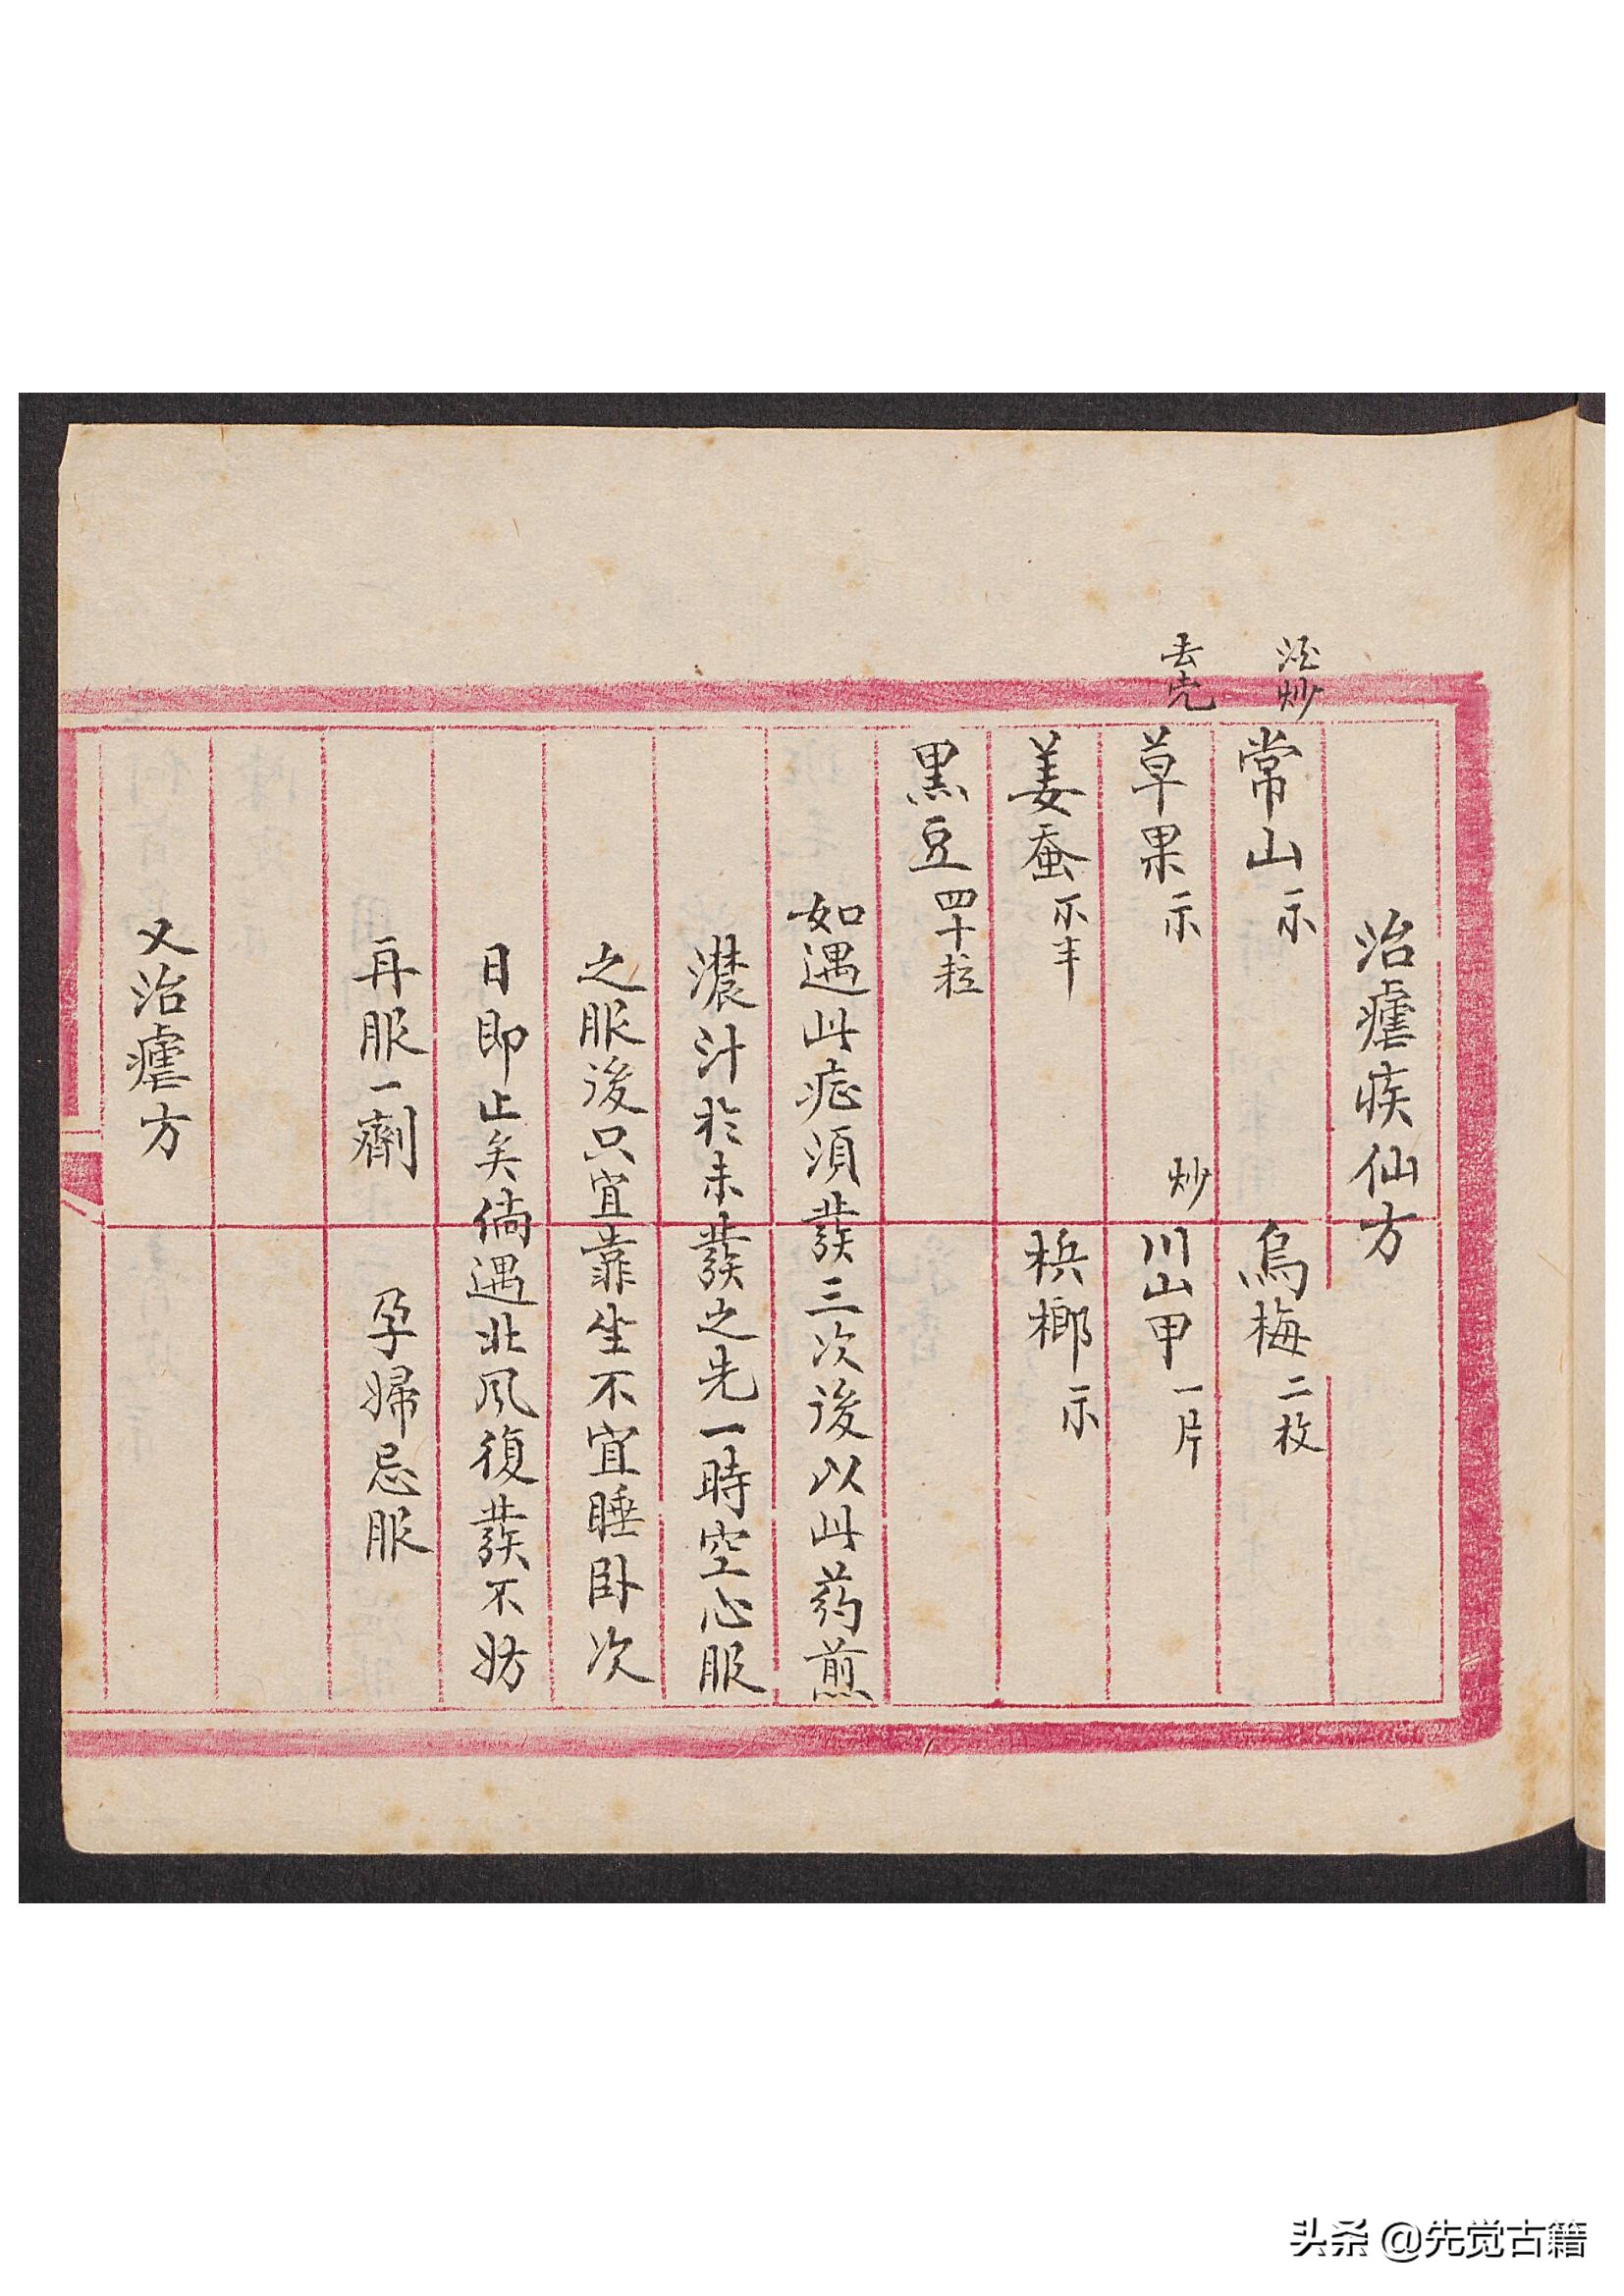 治瘧疾仙方
炒常山示 烏梅二枚
去壳草果示 炒川山甲一片
姜蚕不半 梹榔示
黒豆四十粒
如遇此症須發三次後以此药煎
濃汁於未發之先一時空心服
之服後只宜靠坐不宜睡卧次
日即止矣倘遇北风復發不妨
再服一劑 孕婦忌服
又治瘧方
头条 @先觉古籍